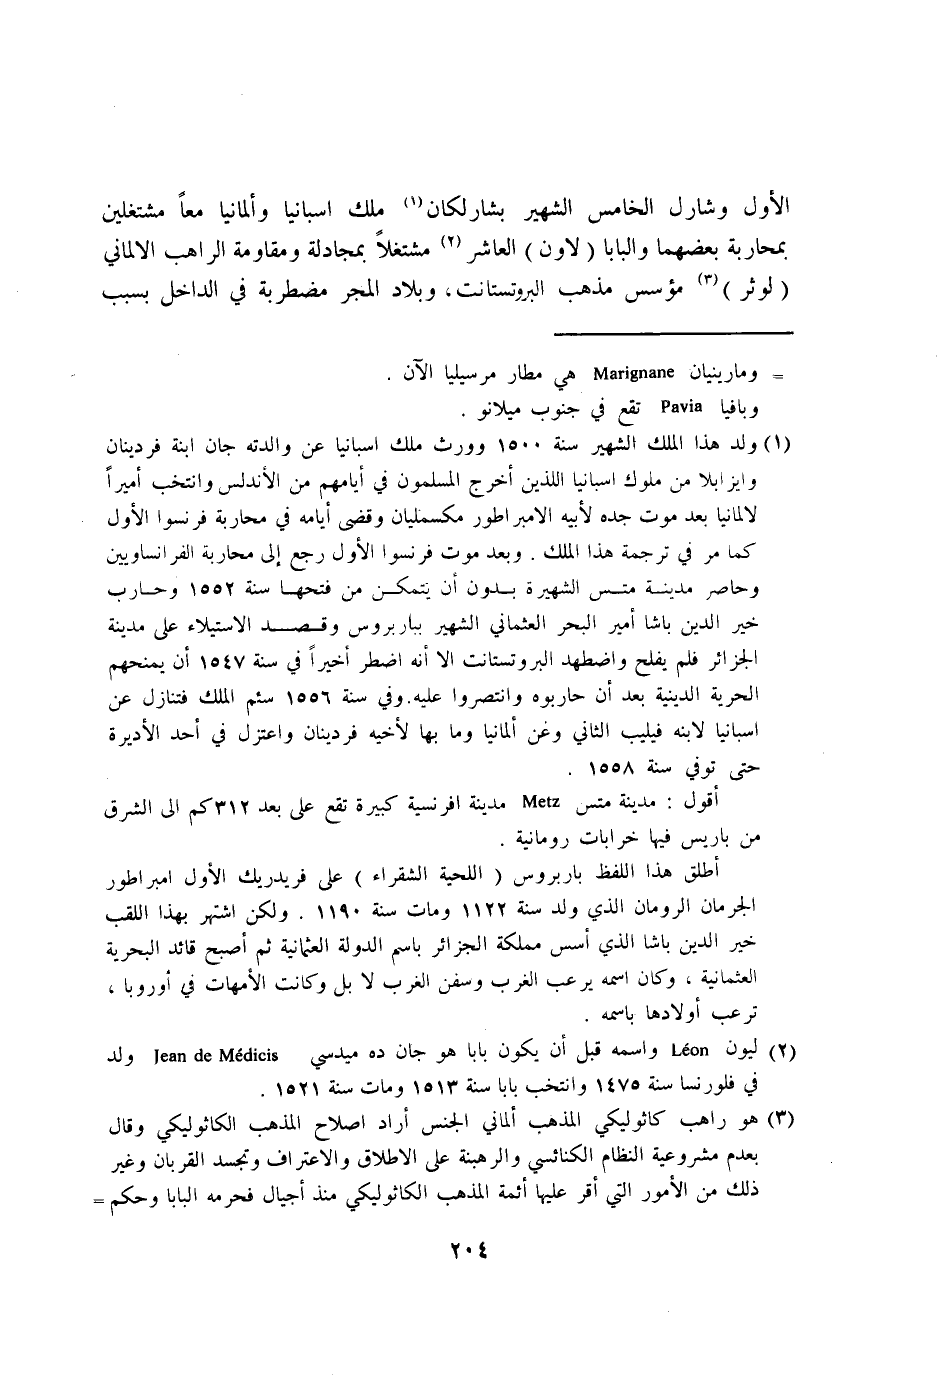 الأول وشارل الخامس الشهير بشارلكان(١) ملك اسبانيا وألمانيا معاً مشتغلين
بمحاربة بعضهما والبابا ( لاون ) العاشر (٢) مشتغلاً بمجادلة ومقاومة الراهب الالماني
( لوثر )(٣) مؤسس مذهب البروتستانت، وبلاد المجر مضطربة في الداخل بسبب
= ومارينيان Marignane هي مطار مرسيليا الآن .
وبافيا Pavia تقع في جنوب ميلانو .
(١) ولد هذا الملك الشهير سنة ١٥٠٠ وورث ملك اسبانيا عن والدته جان ابنة فردينان
وايزابلا من ملوك اسبانيا اللذين أخرج المسلمون في أيامهم من الأندلس وانتخب أميراً
لالمانيا بعد موت جده لأبيه الامبراطور مكسمليان وقضى أيامه في محاربة فرنسوا الأول
كما مر في ترجمة هذا الملك . وبعد موت فرنسوا الأول رجع إلى محاربة الفرانساويين
وحاصر مدينة متس الشهيرة بدون أن يتمكن من فتحها سنة ١٥٥٢ وحارب
خير الدين باشا أمير البحر العثماني الشهير بباربروس وقصد الاستيلاء على مدينة
الجزائر فلم يفلح واضطهد البروتستانت الا أنه اضطر أخيراً في سنة ١٥٤٧ أن يمنحهم
الحرية الدينية بعد أن حاربوه وانتصروا عليه.وفي سنة ١٥٥٦ سئم الملك فتنازل عن
اسبانيا لابنه فيليب الثاني وعن ألمانيا وما بها لأخيه فردينان واعتزل في أحد الأديرة
حتى توفي سنة ١٥٥٨ .
أقول : مدينة متس Metz مدينة افرنسية كبيرة تقع على بعد ٣١٢كم الى الشرق
من باريس فيها خرابات رومانية .
أطلق هذا اللفظ باربروس ( اللحية الشقراء ) على فريدريك الأول امبراطور
الجرمان الرومان الذي ولد سنة ١١٢٢ ومات سنة ١١٩٠ . ولكن اشتهر بهذا اللقب
خير الدين باشا الذي أسس مملكة الجزائر باسم الدولة العثمانية ثم أصبح قائد البحرية
العثمانية ، وكان اسمه يرعب الغرب وسفن الغرب لا بل وكانت الأمهات في أوروبا ،
ترعب أولادها باسمه .
(٢) ليون Léon واسمه قبل أن يكون بابا هو جان ده ميدسي Jean de Médicis ولد
في فلورنسا سنة ١٤٧٥ وانتخب بابا سنة ١٥١٣ ومات سنة ١٥٢١ .
(٣) هو راهب كاثوليكي المذهب ألماني الجنس أراد اصلاح المذهب الكاثوليكي وقال
بعدم مشروعية النظام الكنائسي والرهبنة على الاطلاق والاعتراف وتجسد القربان وغير
ذلك من الأمور التي أقر عليها أئمة المذهب الكاثوليكي منذ أجيال فحرمه البابا وحكم =
٢٠٤